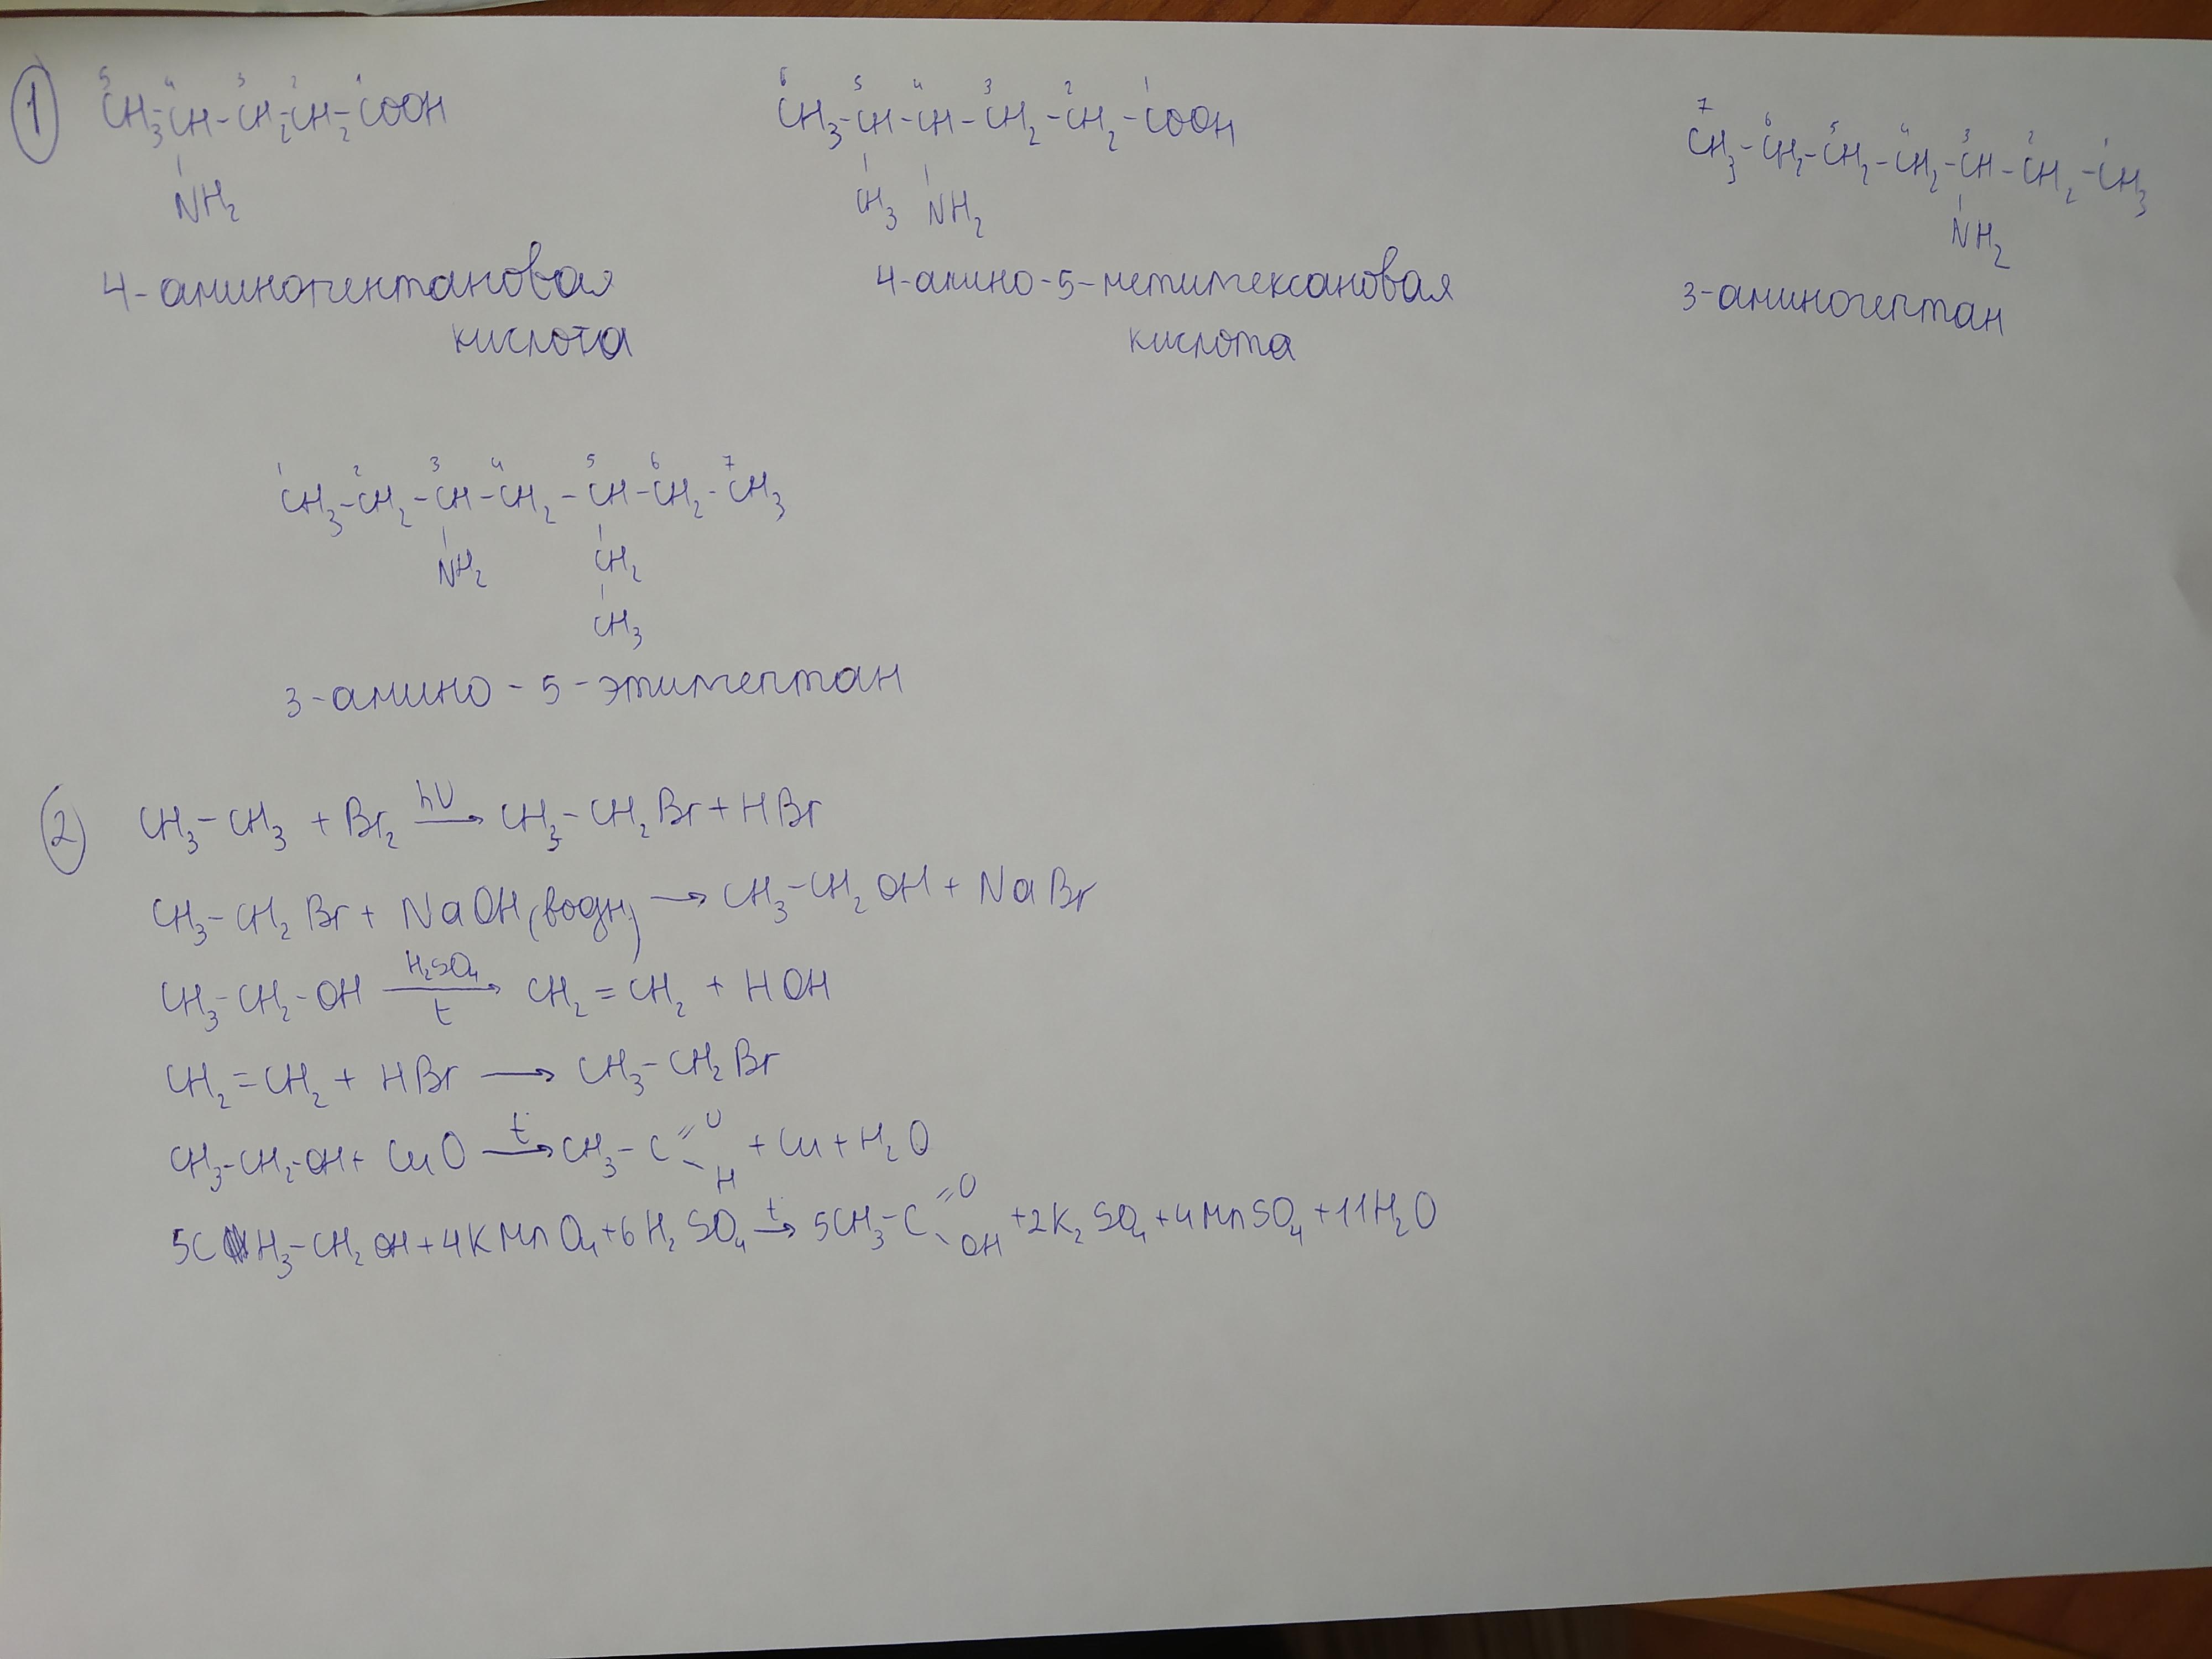 1
5 4 3 2 1
CH₃-CH-CH₂-CH₂-COOH
NH₂
4-аминопентановая
кислота
6 5 4 3 2 1
CH₃-CH-CH-CH₂-CH₂-COOH
CH₃ NH₂
4-амино-5-метилгексановая
кислота
7 6 5 4 3 2 1
CH₃-CH₂-CH₂-CH₂-CH-CH₂-CH₃
NH₂
3-аминогептан
1 2 3 4 5 6 7
CH₃-CH₂-CH-CH₂-CH-CH₂-CH₃
NH₂ CH₂
CH₃
3-амино-5-этилгептан
2
CH₃-CH₃ + Br₂ hν→ CH₃-CH₂Br + HBr
CH₃-CH₂Br + NaOH(водн) → CH₃-CH₂OH + NaBr
CH₃-CH₂-OH H₂SO₄ t→ CH₂=CH₂ + HOH
CH₂=CH₂ + HBr → CH₃-CH₂Br
CH₃-CH₂-OH + CuO t→ CH₃-C=O -H + Cu + H₂O
5CH₃-CH₂OH + 4KMnO₄ + 6H₂SO₄ t→ 5CH₃-C=O -OH + 2K₂SO₄ + 4MnSO₄ + 11H₂O